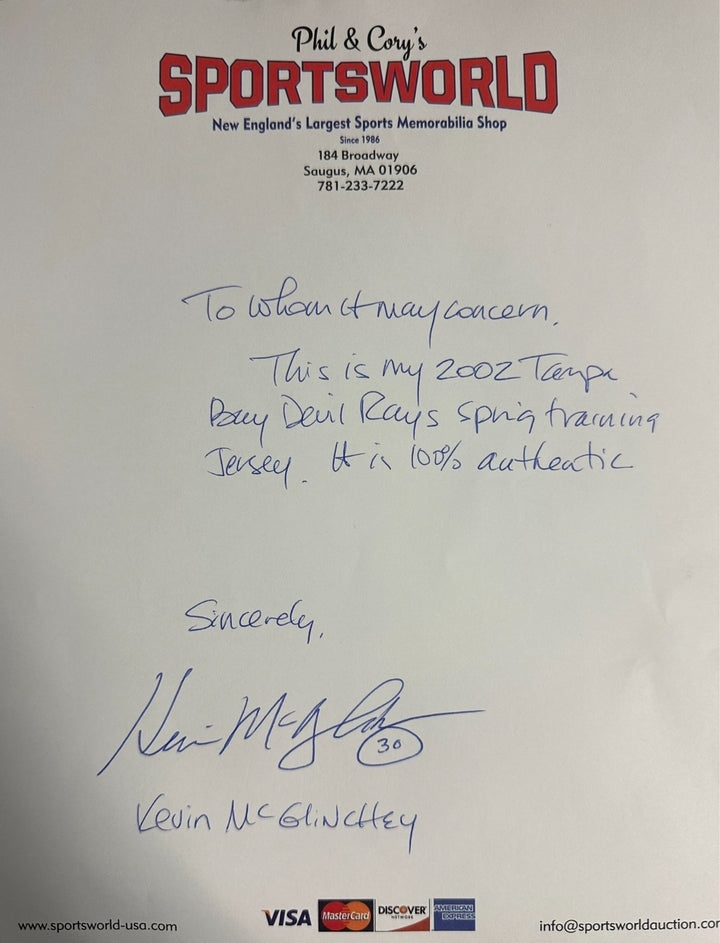 Phil & Cory's
SPORTSWORLD
New England's Largest Sports Memorabilia Shop
Since 1986
184 Broadway
Saugus, MA 01906
781-233-7222
To whom it may concern.
This is my 2002 Tampa
Bay Devil Rays spring training
Jersey. It is 100% authentic
Sincerely,
Kevin McGlinchey
30
Kevin McGlinchey
VISA MasterCard DISCOVER NETWORK AMERICAN EXPRESS
www.sportsworld-usa.com info@sportsworldauction.cor